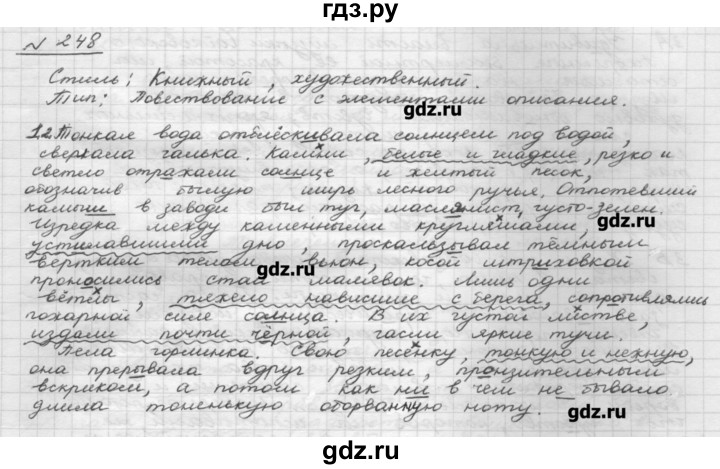 гдз.ру
№ 248
Стиль: Книжный, художественный.
Тип: Повествование с элементами описания.
гдз.ру
1.2. Тонкая вода отблёскивала солнцем под водой,
сверкала галька. Камни, белые и гладкие, резко и
светло отражали солнце и желтый песок,
обозначив былую ширь лесного ручья. Отпотевший
камыш в заводи был туг, маслянист, густо-зелен.
гдз.ру
Изредка между каменными кругляшами,
устилавшими дно, проскальзывал тёмным
вертким телом вьюн, косой штриховкой
гдз.ру
проносились стаи мальков. Лишь одни
вётлы, тяжело нависшие с берега, сопротивлялись
пожарной силе солнца. В их густой листве,
издали почти чёрной, гасли яркие тучи.
Пела горлинка. Свою песенку, тонкую и нежную,
она прерывала вдруг резким, пронзительным
вскриком, а потом как ни в чем не бывало
длила тоненькую оборванную ноту.
гдз.ру
гдз.ру